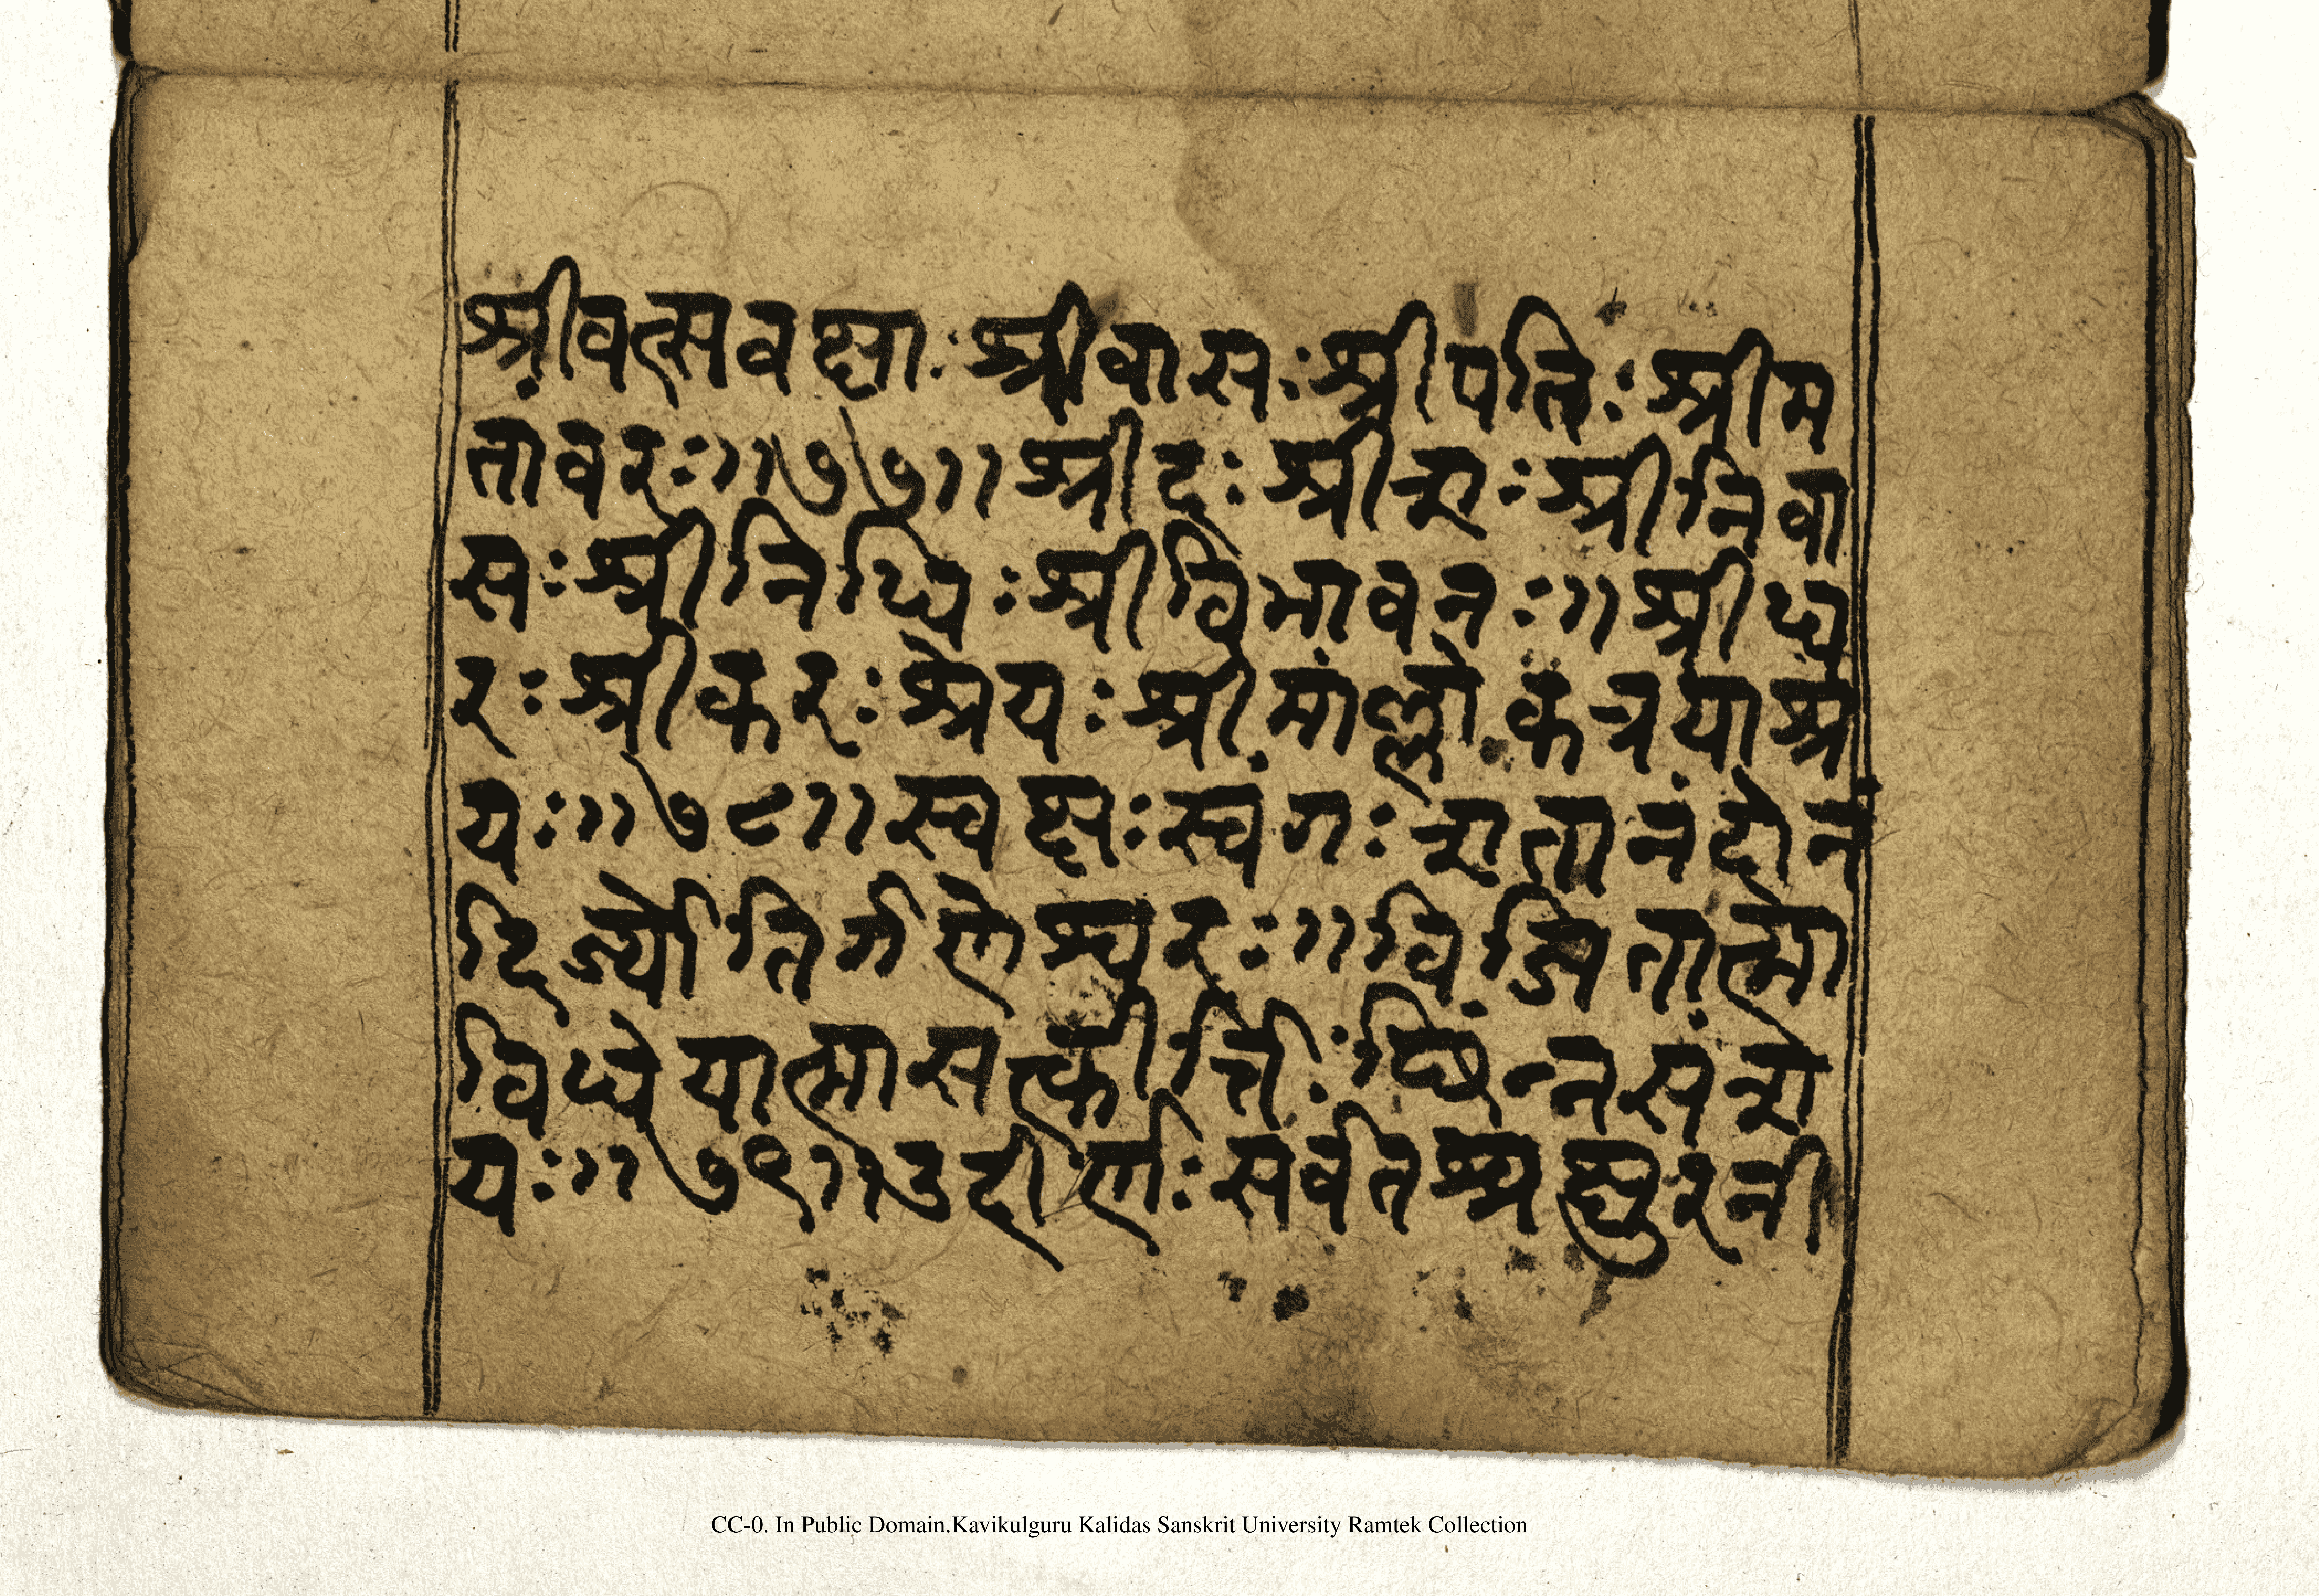 श्रीवत्सवक्षाः श्रीवासः श्रीपतिः श्रीम
तावरः ॥ ७७ ॥ श्रीदः श्रीशः श्रीनिवा
सः श्रीनिधिः श्रीविभावनः ॥ श्रीध
रः श्रीकरः श्रेयः श्रीमांल्लोकत्रयाश्र
यः ॥ ७८ ॥ स्वक्षः स्वंगः शतानंदो नं
दिर्ज्योतिर्गणेश्वरः ॥ विजितात्मा
विधेयात्मा सत्कीर्त्तिः छिंन्नसंश
यः ॥ ७९ ॥ उदीर्णः सर्वतश्चक्षुरनी
CC-0. In Public Domain.Kavikulguru Kalidas Sanskrit University Ramtek Collection